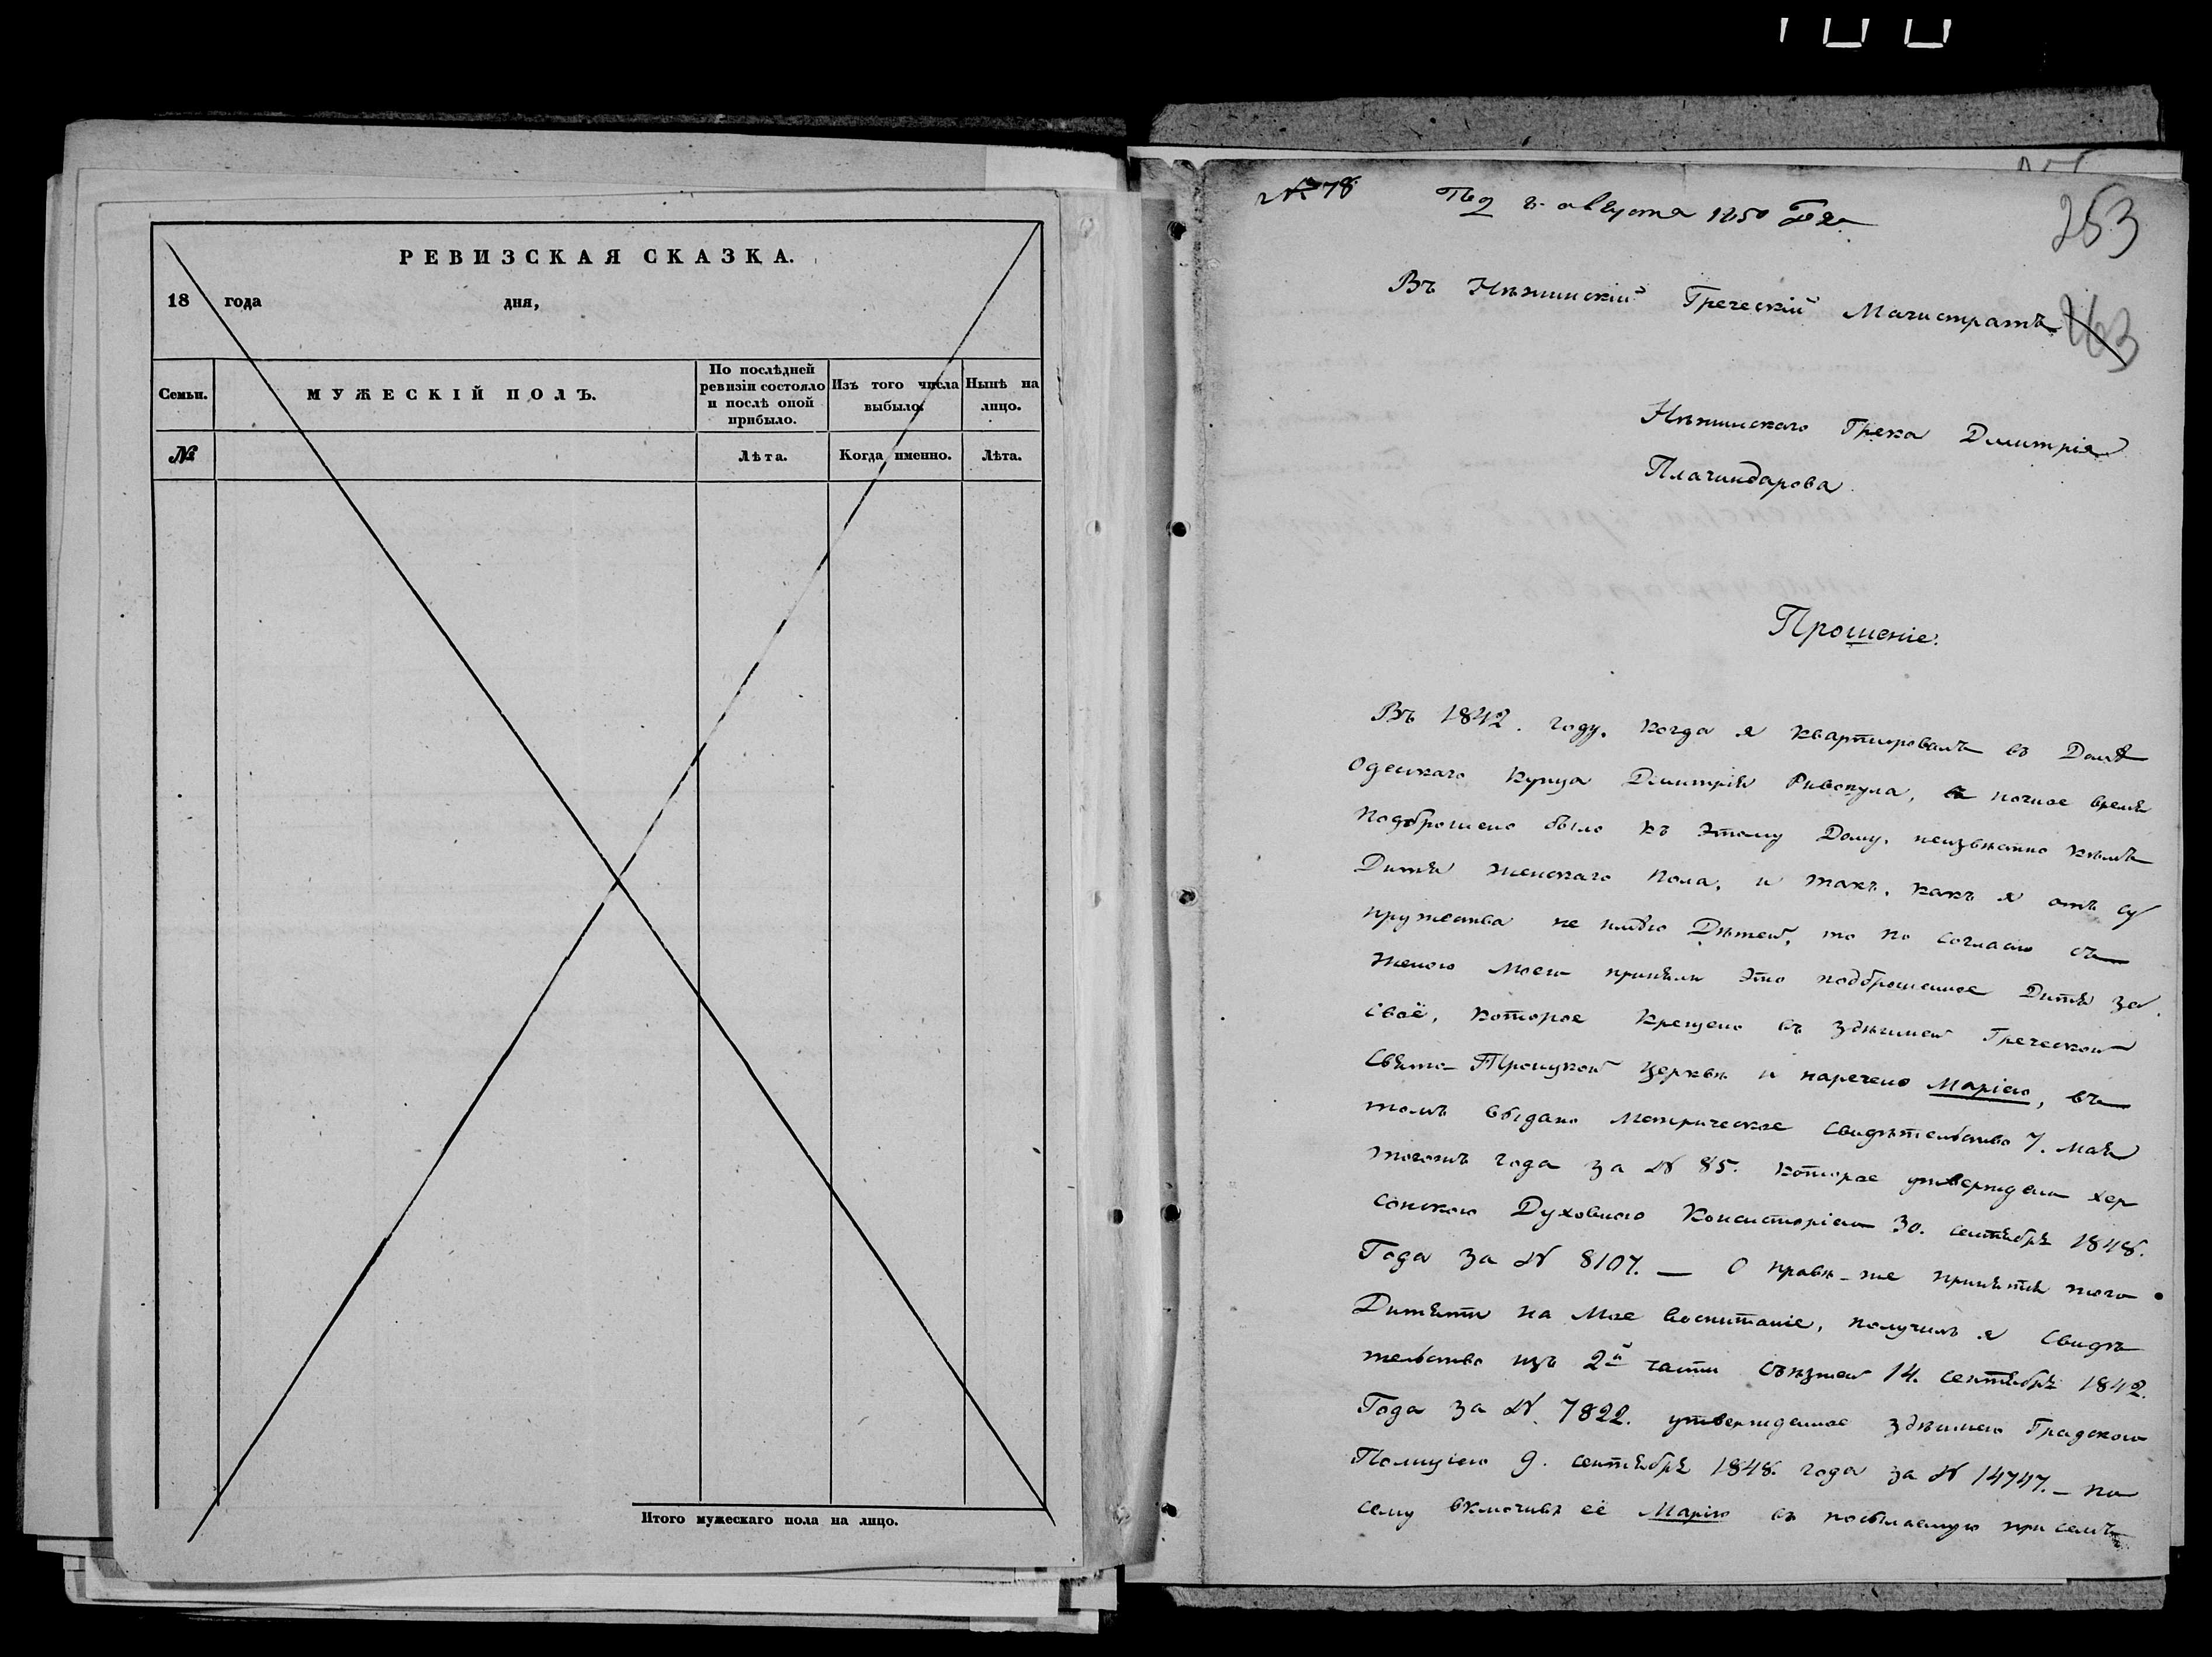 РЕВИЗСКАЯ СКАЗКА.
18 года дня,
Семьи.
МУЖЕСКІЙ ПОЛЪ.
По послѣдней
ревизіи состояло
и послѣ оной
прибыло.
Изъ того числа
выбыло.
Нынѣ на
лицо.
№
Лѣта.
Когда именно.
Лѣта.
Итого мужескаго пола на лицо.
№ 78
августа 1850
253
163
Въ Нѣжинскій Греческій Магистратъ
Нѣжинскаго Грека Димитрія
Плачиндарова
Прошеніе.
Въ 1842. году, когда я квартировалъ въ Домѣ
Одескаго Купца Димитрія Ривопула, въ ночное время
подброшено было къ этому Дому, неизвѣстно кѣмъ
Дитя женскаго пола, и такъ, какъ я отъ су
пружества не имѣю Дѣтей, то по согласію съ
женою моею приняли это подброшенное Дитя за
своё, которое крещено въ здѣшней Греческой
Свято-Троицкой церквѣ и наречено Маріею, въ
томъ выдано метрическое свидѣтельство 7. мая
тогожъ года за № 85. которое утверждено Хер
сонскою Духовною Консисторіею 30. сентября 1848.
Года за № 8107. — О правѣ-же принятія того
Дитяти на мое воспитаніе, получилъ я свидѣ
тельство изъ 2й части съѣзжей 14. сентября 1842.
Года за №. 7822. утвержденное здѣшнею Градскою
Полиціею 9. сентября 1848. года за № 14747. — по
сему включивъ её Марію въ посылаемую при семъ